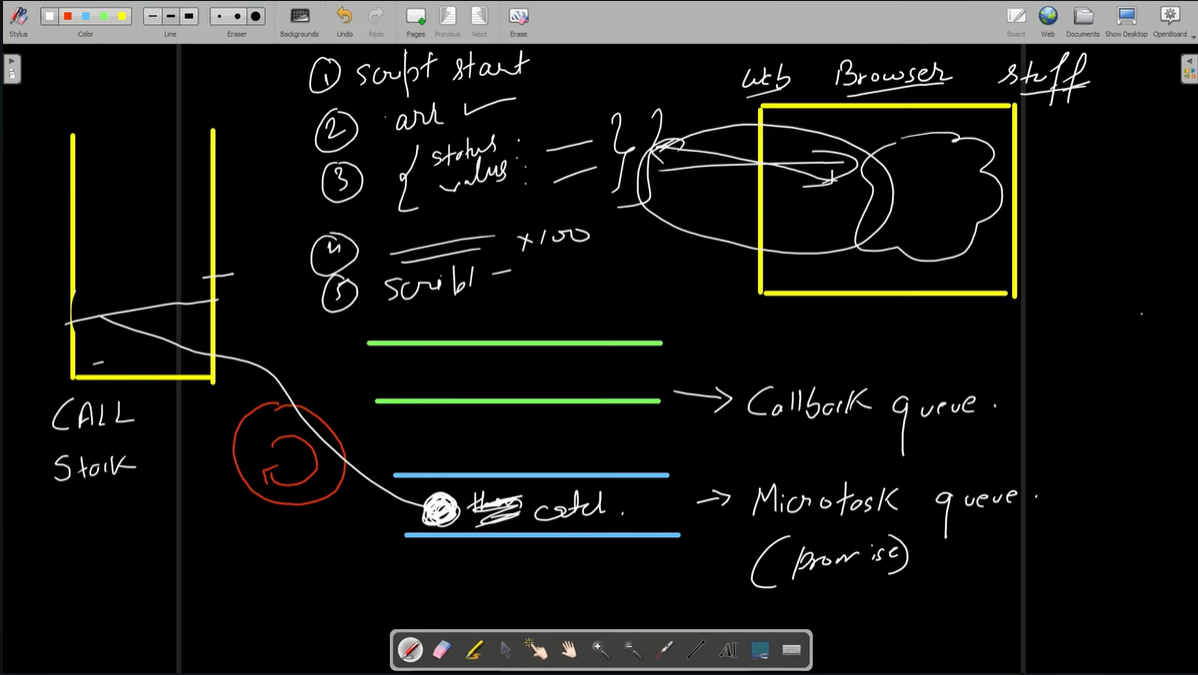 Stylus Color Line Eraser Backgrounds Undo Redo Pages Previous Next Erase Board Web Documents Show Desktop OpenBoard
① script start
② arr
③ { status :
value :
④ ×100
⑤
Web Browser stuff
CALL
Stack
→ Callback queue .
catch .
→ Microtask queue .
(promise)
AI